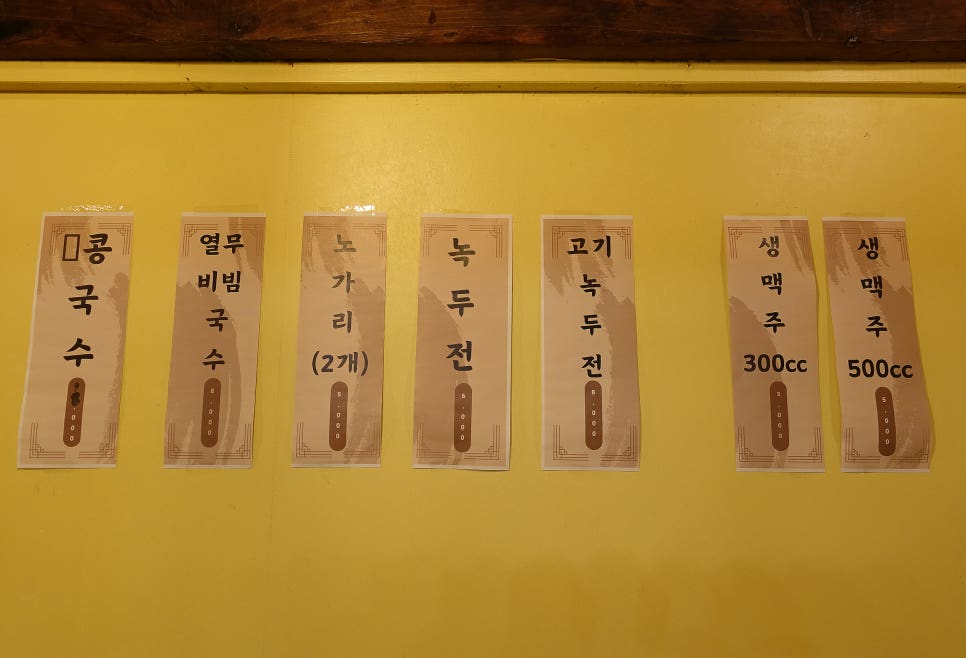 콩국수
열무비빔국수
8.000
노가리(2개)
5.000
녹두전
6.000
고기녹두전
8.000
생맥주300cc
3.000
생맥주500cc
5.000